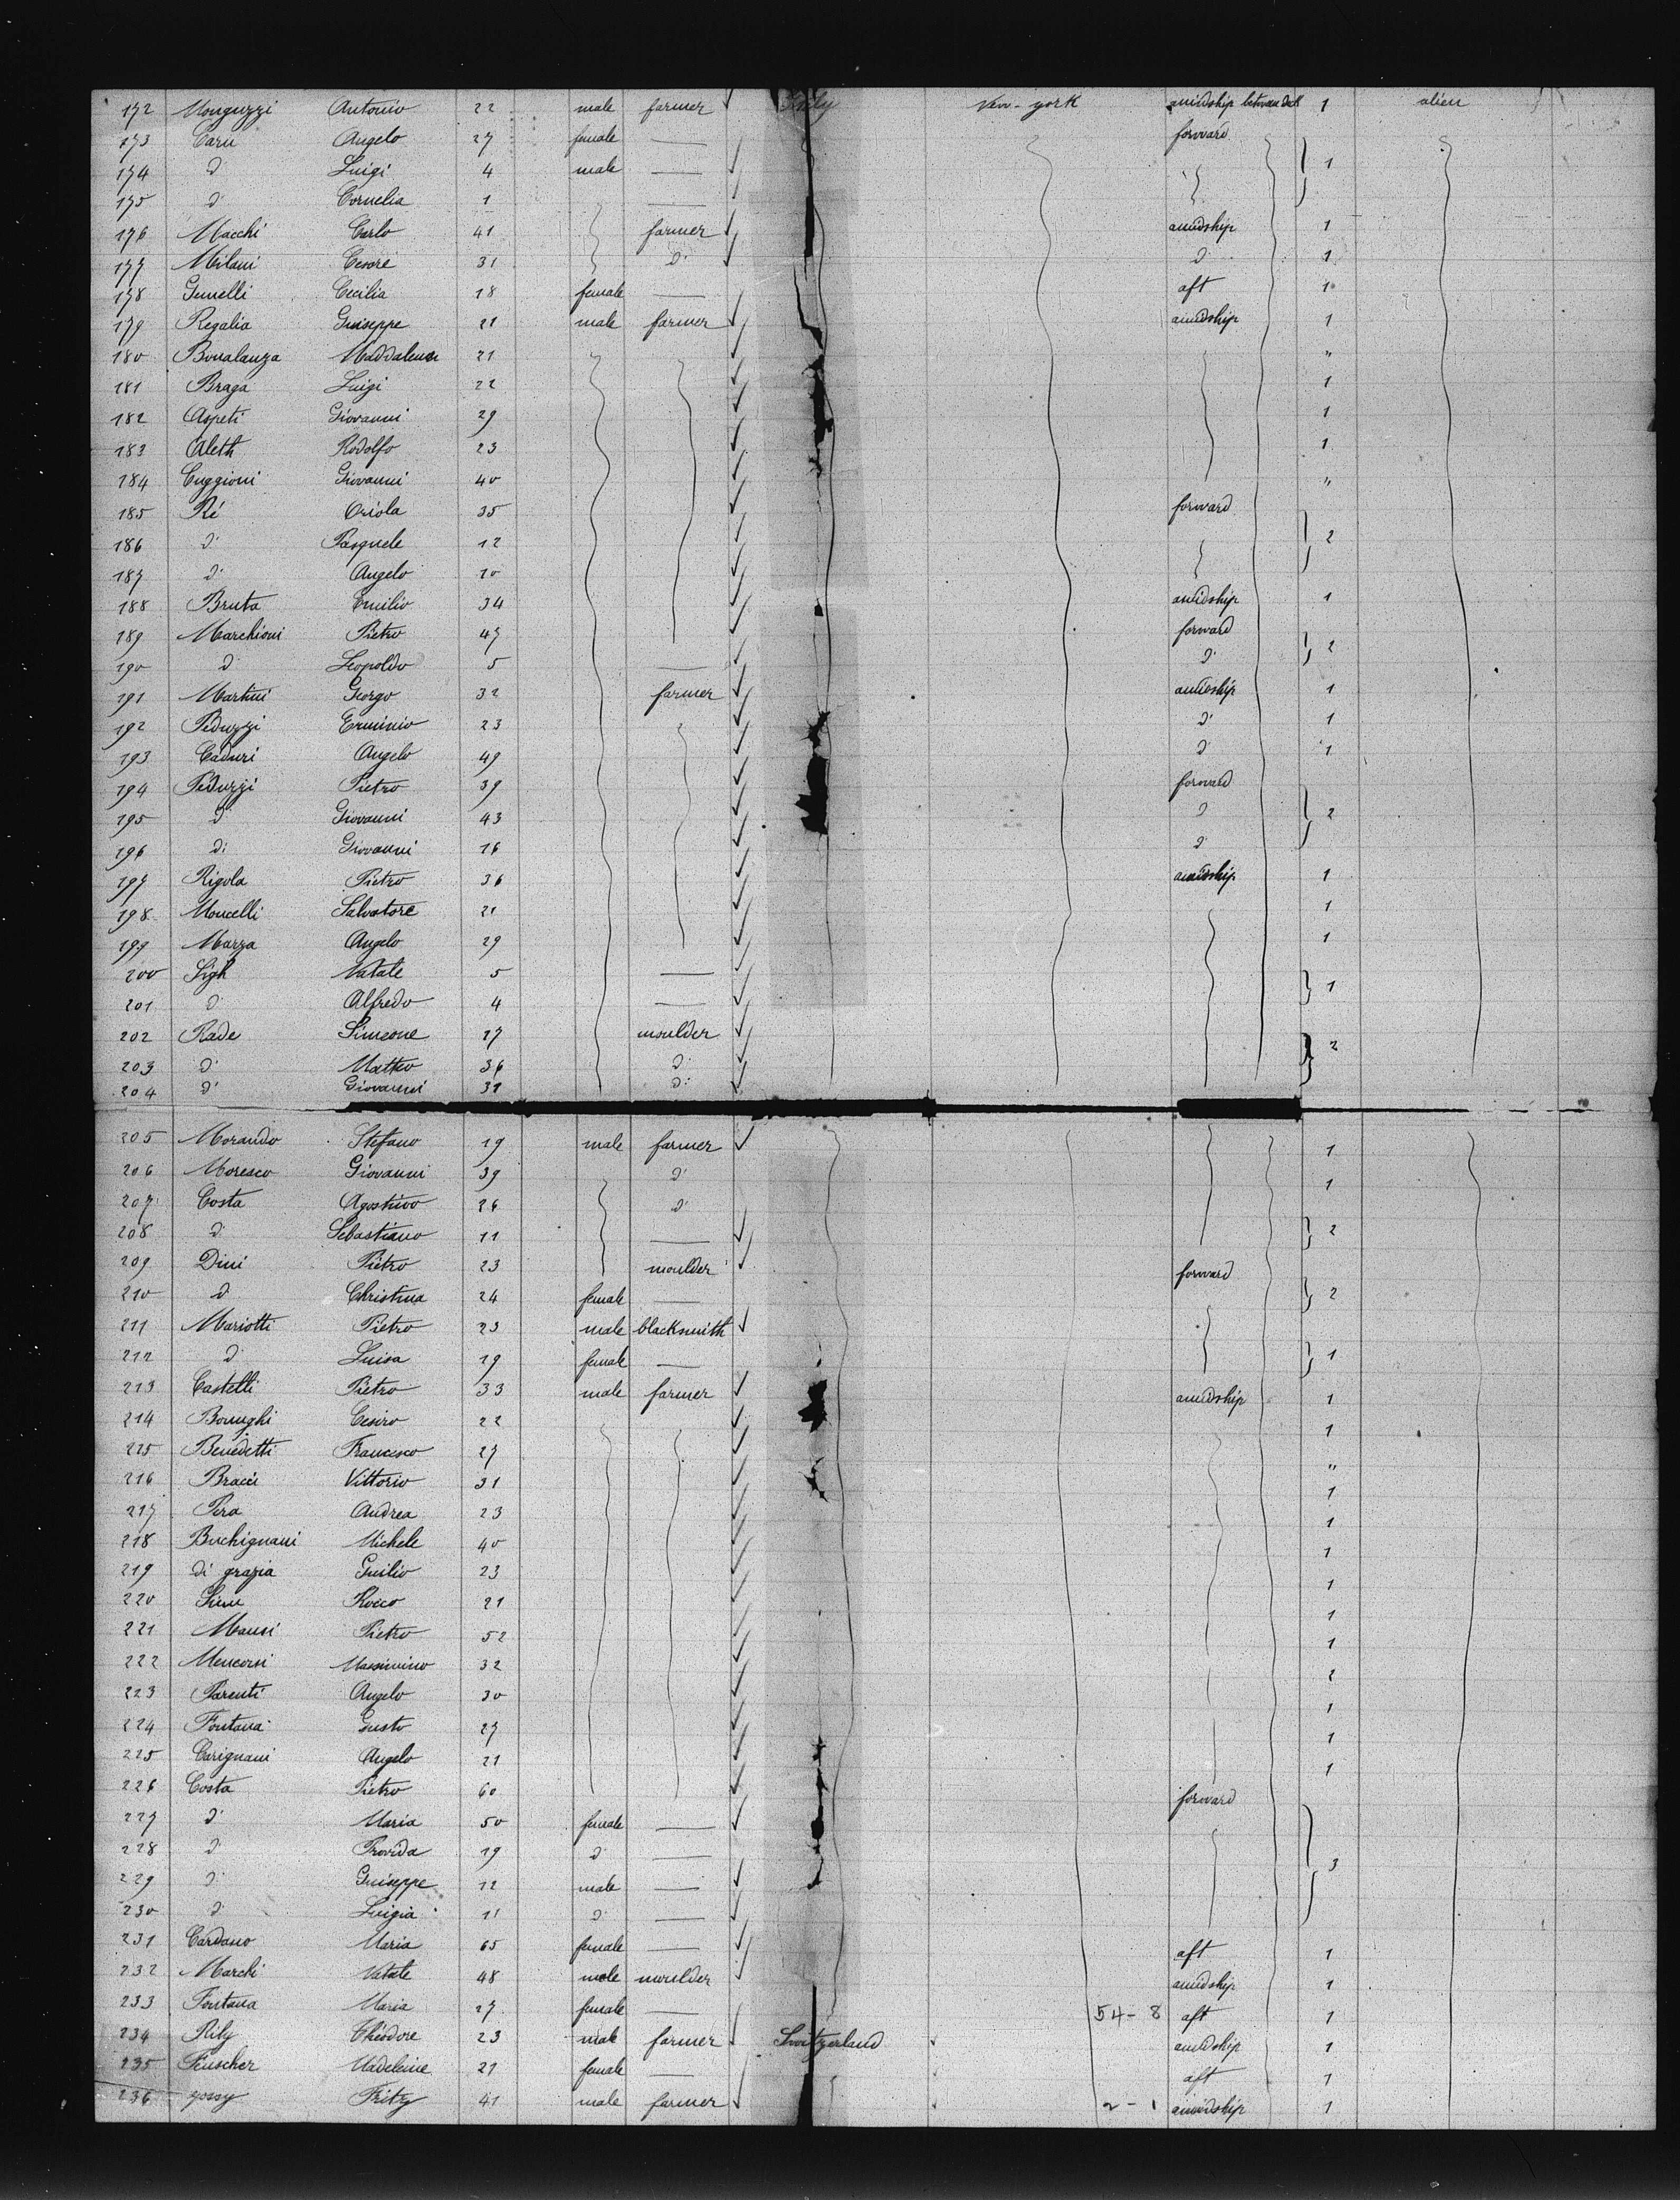 172 Monguzzi Antonio 22 male farmer Italy New-york amidship 1 alien
173 Caru Angelo 27 female — forward
174 d° Luigi 4 male — 1
175 d° Cornelia 1 —
176 Macchi Carlo 41 farmer amidship 1
177 Milani Cesare 31 d° d° 1
178 Gemelli Cecilia 18 female — aft 1
179 Regalia Guiseppe 21 male farmer amidship 1
180 Bonalanza Maddalena 21 "
181 Braga Luigi 22 1
182 Aspeti Giovanni 29 1
183 Aleth Rodolfo 23 1
184 Cuggioni Giovanni 40 "
185 Ré Oriola 35 forward
186 d° Pasquele 12 2
187 d° Angelo 10
188 Bruta Emilio 34 amidship 1
189 Marchioni Pietro 47 forward 2
190 d° Leopoldo 5 — d°
191 Martini Giorgo 32 farmer amidship 1
192 Peduzzi Erminio 23 d° 1
193 Caduri Angelo 49 d° 1
194 Peduzzi Pietro 39 forward
195 d° Giovanni 43 d° 2
196 d° Giovanni 16 d°
197 Rigola Pietro 36 amidship 1
198 Moncelli Salvatore 21 1
199 Marza Angelo 29 1
200 Sigh Natale 5 — 1
201 d° Alfredo 4 —
202 Rade Simeone 27 moulder 2
203 d° Matteo 36 d°
204 d° Giovanni 31 d°
205 Morando Stefano 19 male farmer 1
206 Moresco Giovanni 39 d° 1
207 Costa Agostino 26 d°
208 d° Sebastiano 11 — 2
209 Dini Pietro 23 moulder forward
210 d° Christina 24 female — 2
211 Mariotti Pietro 23 male blacksmith
212 d° Luisa 19 female — 1
213 Castelli Pietro 33 male farmer amidship 1
214 Bonughi Cesiro 22 1
215 Benedetti Francesco 27 "
216 Bracci Vittorio 31 1
217 Pera Andrea 23 1
218 Buchignani Michele 40 1
219 di grazia Guilio 23 1
220 Rocco 21 1
221 Mansi Pietro 52 1
222 Mencorsi Massimino 32 2
223 Parenti Angelo 30 1
224 Fontana Gusto 27 1
225 Carignani Angelo 21 1
226 Costa Pietro 60 forward
227 d° Maria 50 female —
228 d° Provida 19 d° —
229 d° Guiseppe 12 male — 3
230 d° Luigia 11 d° —
231 Cardano Maria 65 female — aft 1
232 Marchi Natale 48 male moulder amidship 1
233 Fontana Maria 27 female — 54-8 aft 1
234 Rily Théodore 23 male farmer Switzerland amidship 1
235 Feuscher Madeleine 21 female — aft 1
236 yossy Fritz 41 male farmer 2-1 amidship 1